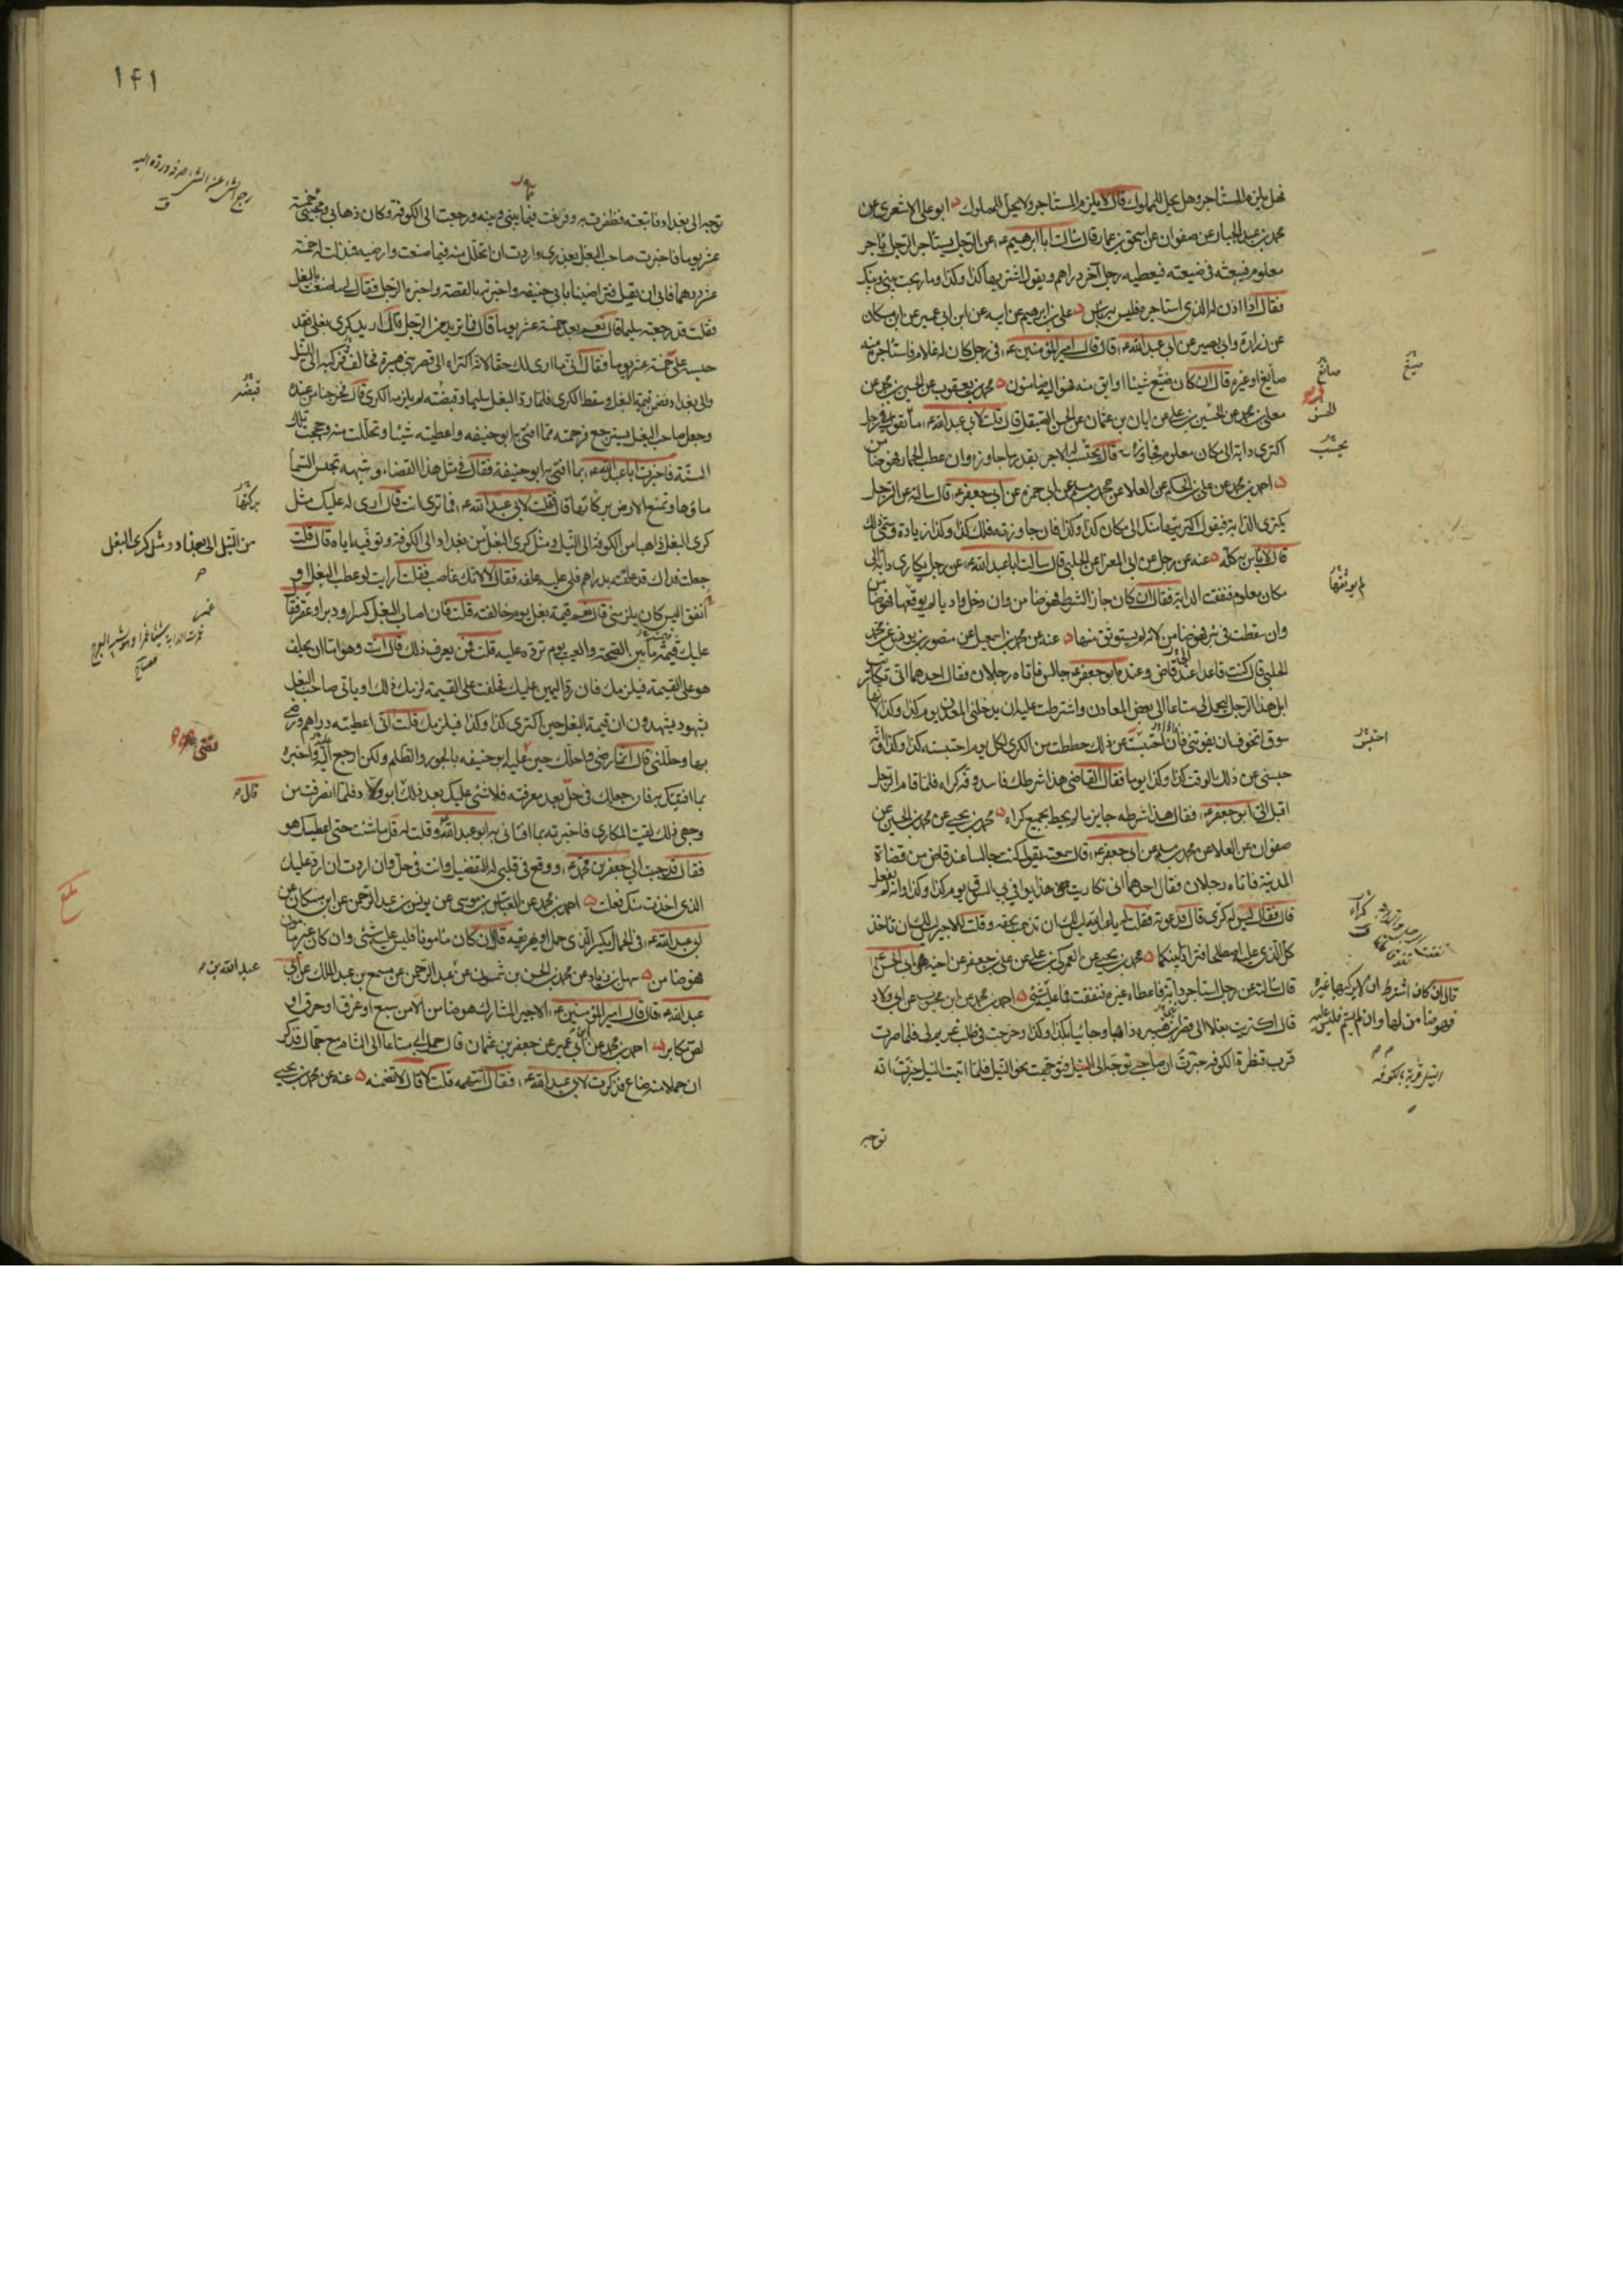 فهل يلزم المستاجر وهل يحل للمملوك قال لا يلزم المستاجر ولا يحل للمملوك ابو علي الاشعري عن
محمد بن عبد الجبار عن صفوان عن اسحق بن عمار قال سالت ابا ابرهيم ع عن الرجل يستاجر الرجل باجر
معلوم فيبعثه في ضيعته فيعطيه رجل آخر دراهم ويقول اشتر بهذا كذا وكذا وما ربحت بيني وبينك
فقال اذا اذن له الذي استاجره فليس به باس علي بن ابرهيم عن ابيه عن ابن ابي عمير عن ابن مسكان
عن زرارة وابي بصير عن ابي عبد الله ع قال قال امير المؤمنين ع في رجل كان له غلام فاستاجره منه
صايغ او غيره قال ان كان ضيع شيئا او ابق منه فمواليه ضامنون محمد بن يعقوب عن الحسين بن محمد عن
معلى بن محمد عن الحسن بن علي عن ابان بن عثمان عن الحسن الصيقل قال قلت لابي عبد الله ع ما تقول في رجل
اكترى دابة الى مكان معلوم فجاوزه قال يحتسب له الاجر بقدر ما جاوز وان عطب الحمار فهو ضامن
احمد بن محمد عن علي بن الحكم عن العلا عن محمد بن مسلم عن ابي حمزه عن ابي جعفر ع قال سالته عن الرجل
يكتري الدابة فيقول اكتريتها منك الى مكان كذا وكذا فان جاوزته فلك كذا وكذا زيادة ويسمي ذلك
قال لا باس به كله عنه عن رجل عن ابي المعزا عن الحلبي قال سالت ابا عبد الله ع عن رجل تكارى دابة الى
مكان معلوم فنفقت الدابة فقال ان كان جاز الشرط فهو ضامن وان دخل واديا لم يوثقها فهو ضامن
وان سقطت في بئر فهو ضامن لانه لم يستوثق منها عنه عن محمد بن اسمعيل عن منصور بن يونس عن محمد
الحلبي قال كنت قاعدا عند قاض وعنده ابو جعفر ع جالس فاتاه رجلان فقال احدهما اني تكاريت
ابل هذا الرجل ليحمل لي متاعا الى بعض المعادن واشترطت عليه ان يدخلني المعدن يوم كذا وكذا لانها
سوق اتخوف ان يفوتني فان احتبست عن ذلك حططت من الكرى لكل يوم احتبسته كذا وكذا وانه
حبسني عن ذلك الوقت كذا وكذا يوما فقال القاضي هذا شرط فاسد وفه كراه فلما قام الرجل
اقبل الي ابو جعفر ع فقال هذا شرطه جايز ما لم يحط بجميع كراه محمد بن يحيى عن محمد بن الحسين عن
صفوان عن العلا عن محمد بن مسلم عن ابي جعفر ع قال سمعته يقول كنت جالسا عند قاض من قضاة
المدينة فاتاه رجلان فقال احدهما اني تكاريت هذا يوافي بي السوق يوم كذا وكذا وانه لم يفعل
قال فقال ليس له كرى قال فدعوته فقلت له يا عبد الله ليس لك ان تذهب بحقه وقلت للاجير ليس لك ان تاخذ
كل الذي عليه اصطلحا فترادا بينكما محمد بن يحيى عن العمركي بن علي عن علي بن جعفر عن اخيه ابي الحسن ع
قال سالته عن رجل استاجر دابة فاعطاها غيره فنفقت ما عليه شئ احمد بن محمد عن ابن محبوب عن ابي ولاد
قال اكتريت بغلا الى قصر بني هبيره ذاهبا وجائيا بكذا وكذا وخرجت في طلب غريم لي فلما صرت
قرب قنطرة الكوفه خبرت ان صاحبي توجه الى النيل فتوجهت نحو النيل فلما اتيت النيل خبرت انه
توجه
صايغ
صيغ
الحسن
يحتسب
لم يوثقها
احتبس
قال ان كان اشترط ان لا يركبها غيره
فهو ضامن لها وان لم يسم فليس عليه
النيل قرية بالكوفه
١٤١
توجه الى بغداد فاتبعته فظفرت به وفرغت فيما بيني وبينه ورجعت الى الكوفة وكان ذهابي ومجيئي خمسة
عشر يوما فاخبرت صاحب البغل بعذري واردت ان اتحلل منه فيما صنعت وارضيه فبذلت له خمسة
عشر درهما فابى ان يقبل فتراضينا بابي حنيفه واخبرته بالقصة واخبره الرجل فقال لي ما صنعت بالبغل
فقلت قد رجعته سليما قال نعم بعد خمسة عشر يوما قال فما تريد من الرجل قال اريد كرى بغلي فقد
حبسه علي خمسة عشر يوما فقال اني ما ارى لك حقا لانه اكتراه الى قصر بني هبيرة فخالف فركبه الى النيل
والى بغداد فضمن قيمة البغل وسقط الكرى فلما رد البغل سليما وقبضته لم يلزمه الكرى قال فخرجنا من عنده
وجعل صاحب البغل يسترجع فرحمته مما افتى به ابو حنيفه واعطيته شيئا وتحللت منه وحججت تلك
السنة فاخبرت ابا عبد الله ع بما افتى به ابو حنيفة فقال في مثل هذا القضاء وشبهه تحبس السماء
ماؤها وتمنع الارض بركاتها قال فقلت لابي عبد الله ع فما ترى انت قال ارى له عليك مثل
كرى البغل ذاهبا من الكوفة الى النيل ومثل كرى البغل من بغداد الى الكوفة وتوفيه اياه قال قلت
جعلت فداك قد علفته بدراهم فلي عليه علفه فقال لا لانك غاصب فقلت ارايت لو عطب البغل او
انفق اليس كان يلزمني قال نعم قيمة بغل يوم خالفته قلت فان اصاب البغل كسر او دبر او عقر فقال
عليك قيمة ما بين الصحة والعيب يوم ترده عليه قلت فمن يعرف ذلك قال انت وهو اما ان يحلف
هو على القيمة فيلزمك فان رد اليمين عليك فحلفت على القيمة لزمك ذلك او ياتي صاحب البغل
بشهود يشهدون ان قيمة البغل حين اكترى كذا وكذا فيلزمك قلت اني اعطيته دراهم ورضي
بها وحللني قال انما رضي فاحلك حين قضى عليه ابو حنيفه بالجور والظلم ولكن ارجع اليه واخبره
بما افتيتك به فان جعلك في حل بعد معرفته فلا شئ عليك بعد ذلك ابو ولاد فلما انصرفت من
وجهي ذلك لقيت المكاري فاخبرته بما افتاني به ابو عبد الله وقلت له قل ما شئت حتى اعطيكه هو
فقال قد حببت الي جعفر بن محمد ع ووقع في قلبي له التفضيل وانت في حل وان اردت ان ارد عليك
الذي اخذت منك فعلت احمد بن محمد عن العباس بن موسى عن يونس بن عبد الرحمن عن ابن مسكان عن
ابي عبد الله ع في الحمال يكسر الذي حمل او يهريقه قال ان كان مامونا فليس عليه شئ وان كان غير مامون
فهو ضامن سهل بن زياد عن محمد بن الحسن بن شمون عن عبد الرحمن عن مسمع بن عبد الملك عن ابي
عبد الله ع قال قال امير المؤمنين ع الاجير المشارك هو ضامن الا من سبع او غرق او حرق او
لص مكابر احمد بن محمد عن ابن ابي عمير عن جعفر بن عثمان قال حمل ابي متاعا الى الشام مع جمال فذكر
ان حملا منه ضاع فذكرت لابي عبد الله ع فقال اتتهمه قلت لا قال لا تضمنه عنه عن محمد بن يحيى
قبضته
بركتها
من النيل الى بغداد ومثل كرى البغل
قال
عبد الله بن